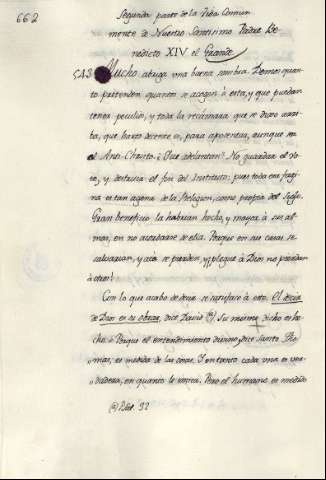 662
Segunda parte de la Vida Comun
mente de Nuestro Santisimo Padre Be
nedicto XIV el Grande
543 Mucho abriga una buena sombra. Demos quan
to pretenden quanto se acogen à esta, y que puedan
tener peculio, y toda la recamara que se dixo arri
ta, que harto decente es, para aposentar, aunque sea
el Ante-Christo. Què adelantan? No guardar el Vo
to, y destruir el fin del Instituto: pues toda esa fagi
na es tan agena de la Religion, como propia del Siglo.
Gran beneficio la habrian hecho, y mayor à sus al
mas, en no acordarse de ella. Porque en sus casas se
salvarian, y acà se pierden, y plegue à Dios no pierdan
à otros!
Con lo que acabo de decir se satisface à esto. El
de Dios es su obrar, dice David (a). Su mismo dicho es he
cho. Porque el entendimiento divino, dice Santo Tho
mas, es medida de las cosas. Y en tanto cada una es ver
dadera, en quanto le imita. Pero el humano es medido
(a) Psal. 32